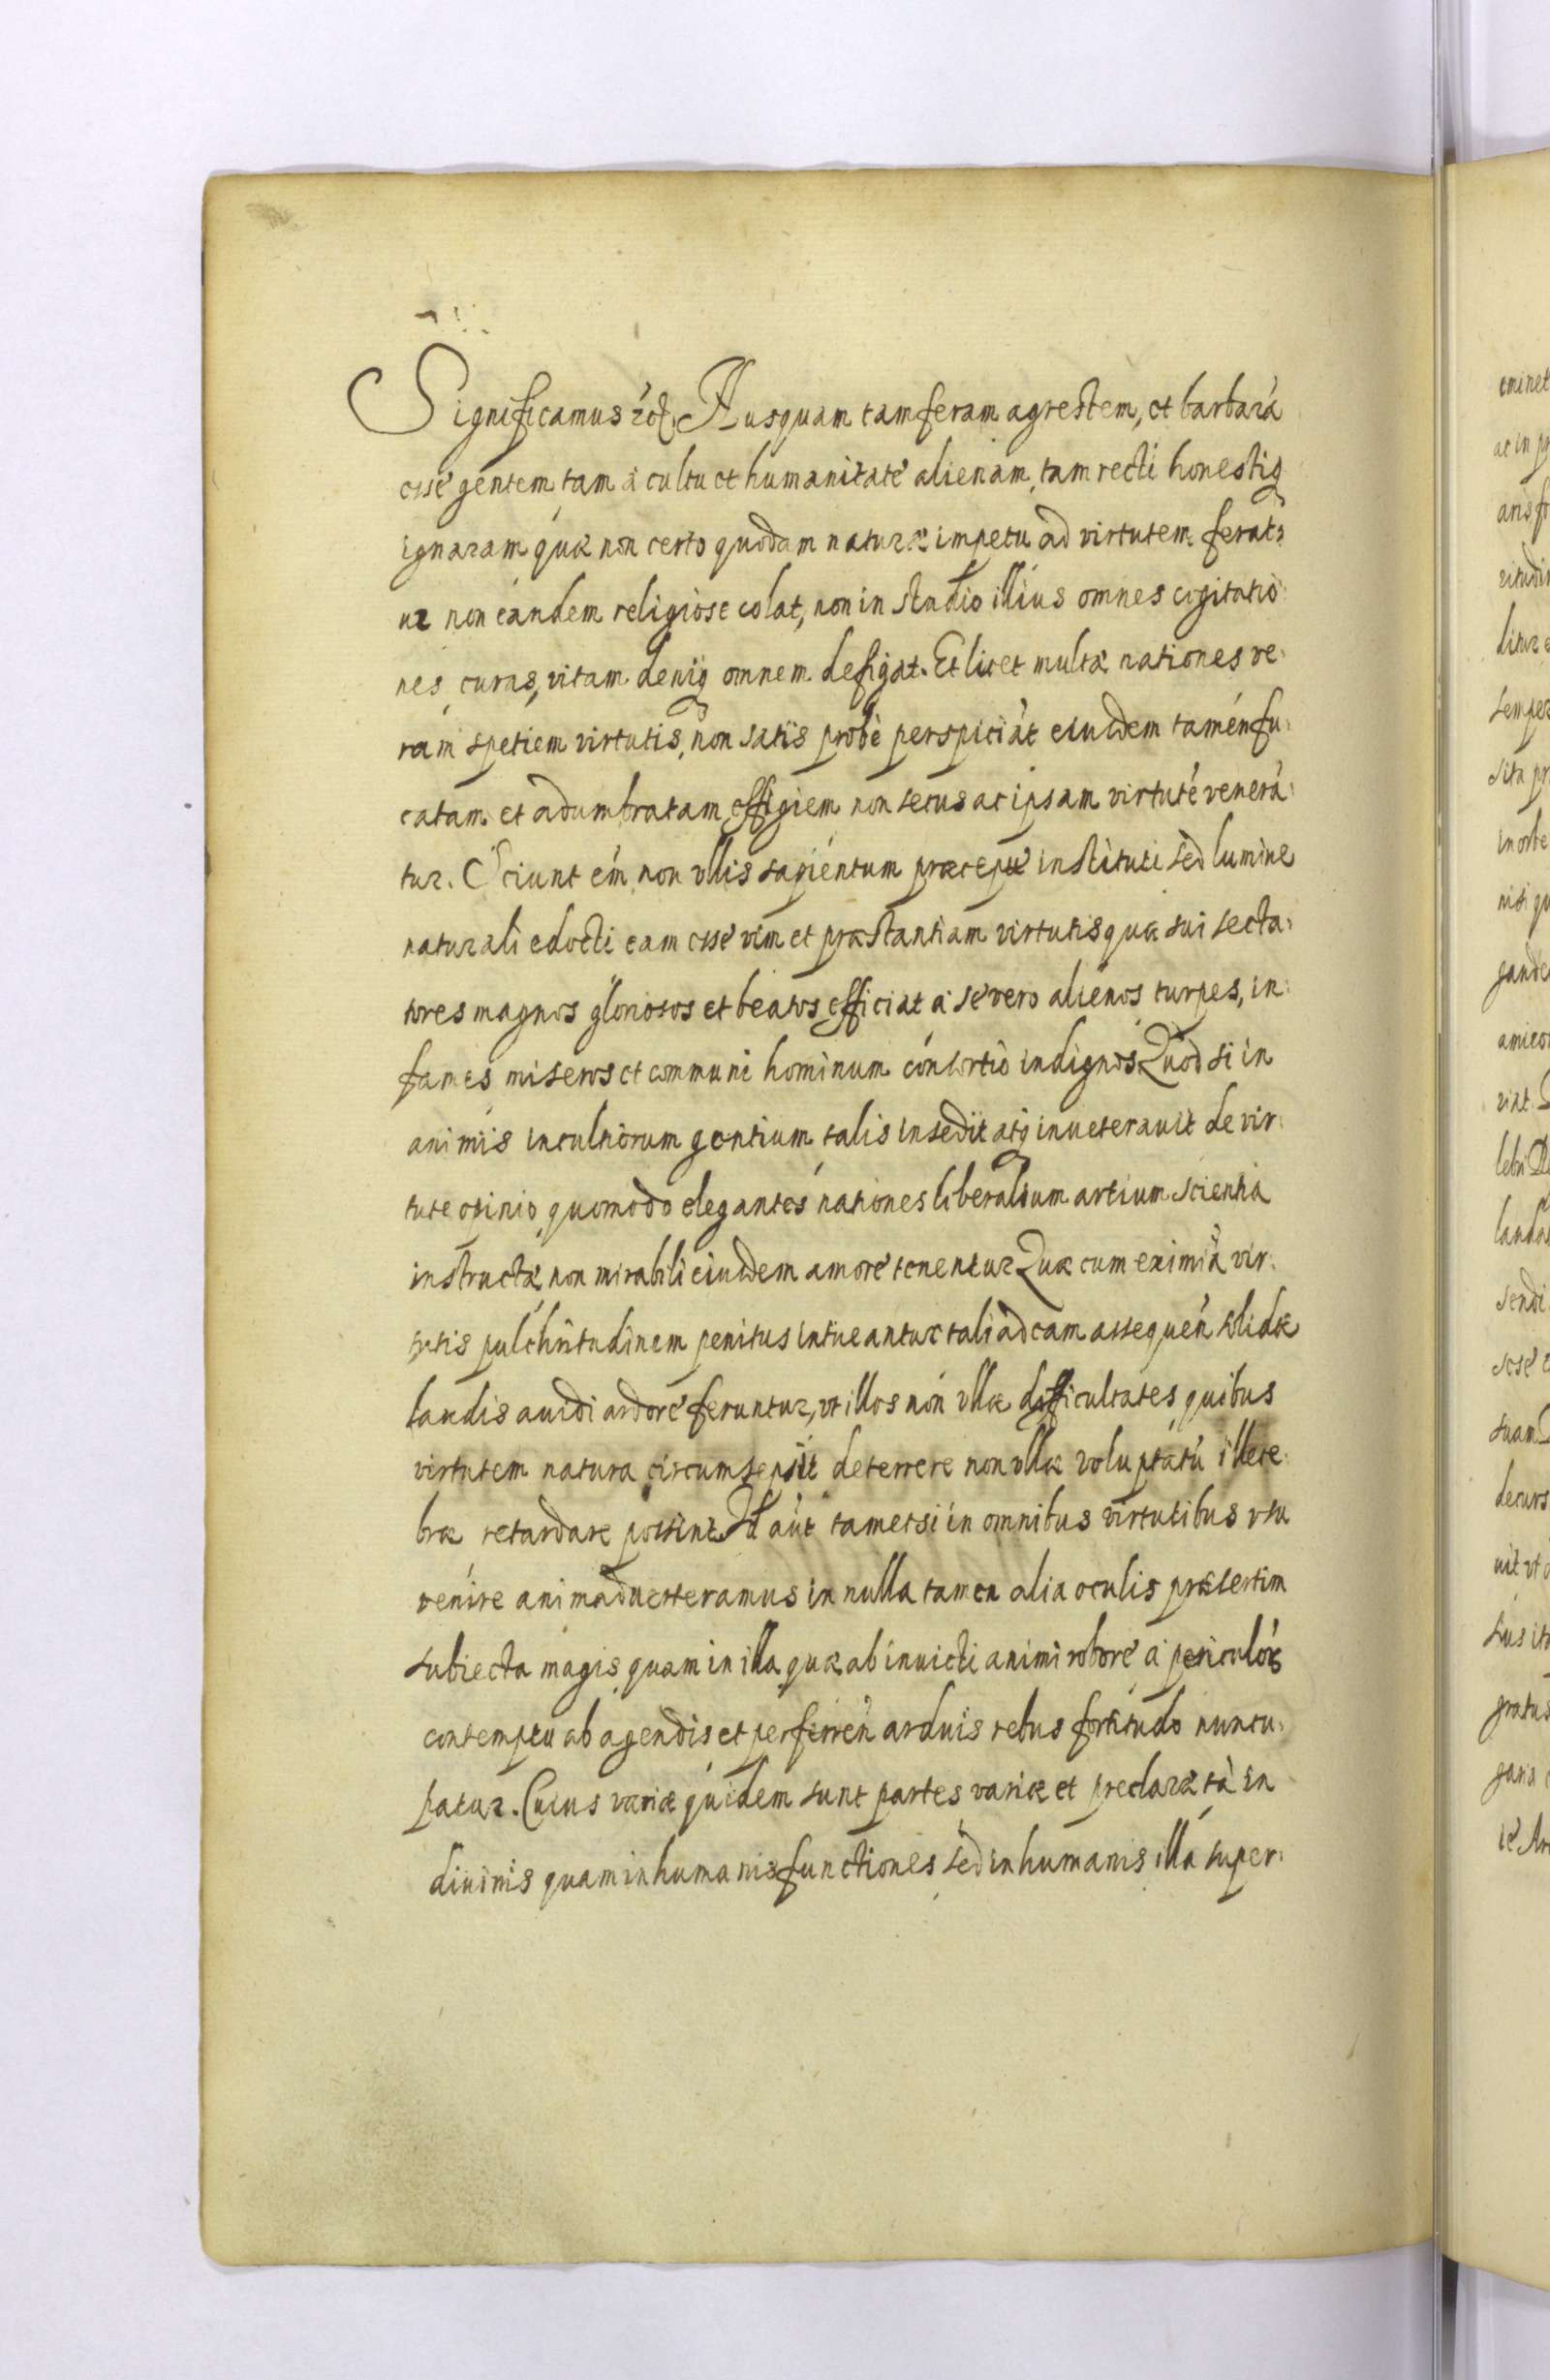 Significamus Nusquam tam feram agrestem, et barbarã
esse gentem tam à cultu et humanitate alienam, tam recti honestiq
ignaram quæ non certo quodam naturæ impetu ad virtutem ferat?
ur non eandem religiose colat, non in studio illius omnes cogitatio
nes curas, vitam deniq omnem defigat. Et licet multæ nationes ve
ram spetiem virtutis, non satis probè perspiciãt eiusdem tamen fu:
catam et adumbratam effigiem non secus ac ipsam virtutẽ venerã:
tur. Sciunt em̃ non vllis sapientum præceptis instituti sed lumine
naturali edocti eam esse vim et præstantiam virtutis quæ sui secta:
tores magnos gloriosos et beatos efficiat à se vero alienos turpes, in:
fames miseros et communi hominum consortio indignos. Quod si in
animis incultiorum gentium talis insedit atq inueterauit de vir:
tute opinio, quomodo elegantes nationes liberalium artium scientia
instructæ non mirabili eiusdem amore tenentur Quæ cum eximiã vir:
tutis pulchritudinem penitus intueantur tali ad eam assequeñ solidæ
laudis auidi ardore feruntur, vt illos non vllæ difficultates quibus
virtutem natura circumsepsit deterrere non vllæ voluptatũ illece:
bræ retardare possint. Id aũt tametsi in omnibus virtutibus vsu
venire animaduerteramus in nulla tamen alia oculis præsertim
subiecta magis quam in illa quæ ab inuicti animi robore à periculor
contemptu ab agendis et perferreñ arduis rebus fortitudo nuncu:
patur. Cuius variæ quidem sunt partes variæ et preclaræ tã in
diuinis quam in humanis functiones sed in humanis illa super: